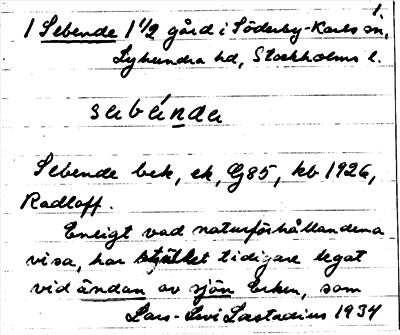 1.
1 Sebende 1 1/2 gård i Söderby-Karls sn,
Lyhundra hd, Stockholms l.
sebénde
Sebende bek, ek, G85, kb 1926,
Radloff.
Enligt vad naturförhållandena
visa, har stället tidigare legat
vid ändan av sjön Erken, som
Lars-Levi Læstadius 1934